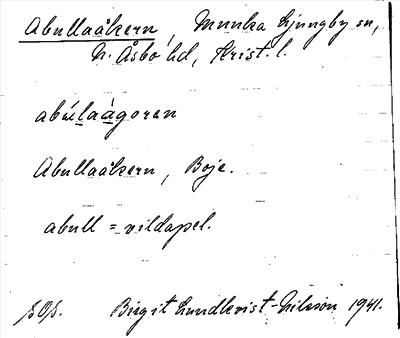 Abullaåkern, Munka Ljungby sn,
N. Åsbo hd, Krist. l.
abúlaágoren
Abullaåkern, Boje.
abull = vildapel.
Birgit Lundkvist-Nilsson 1941.